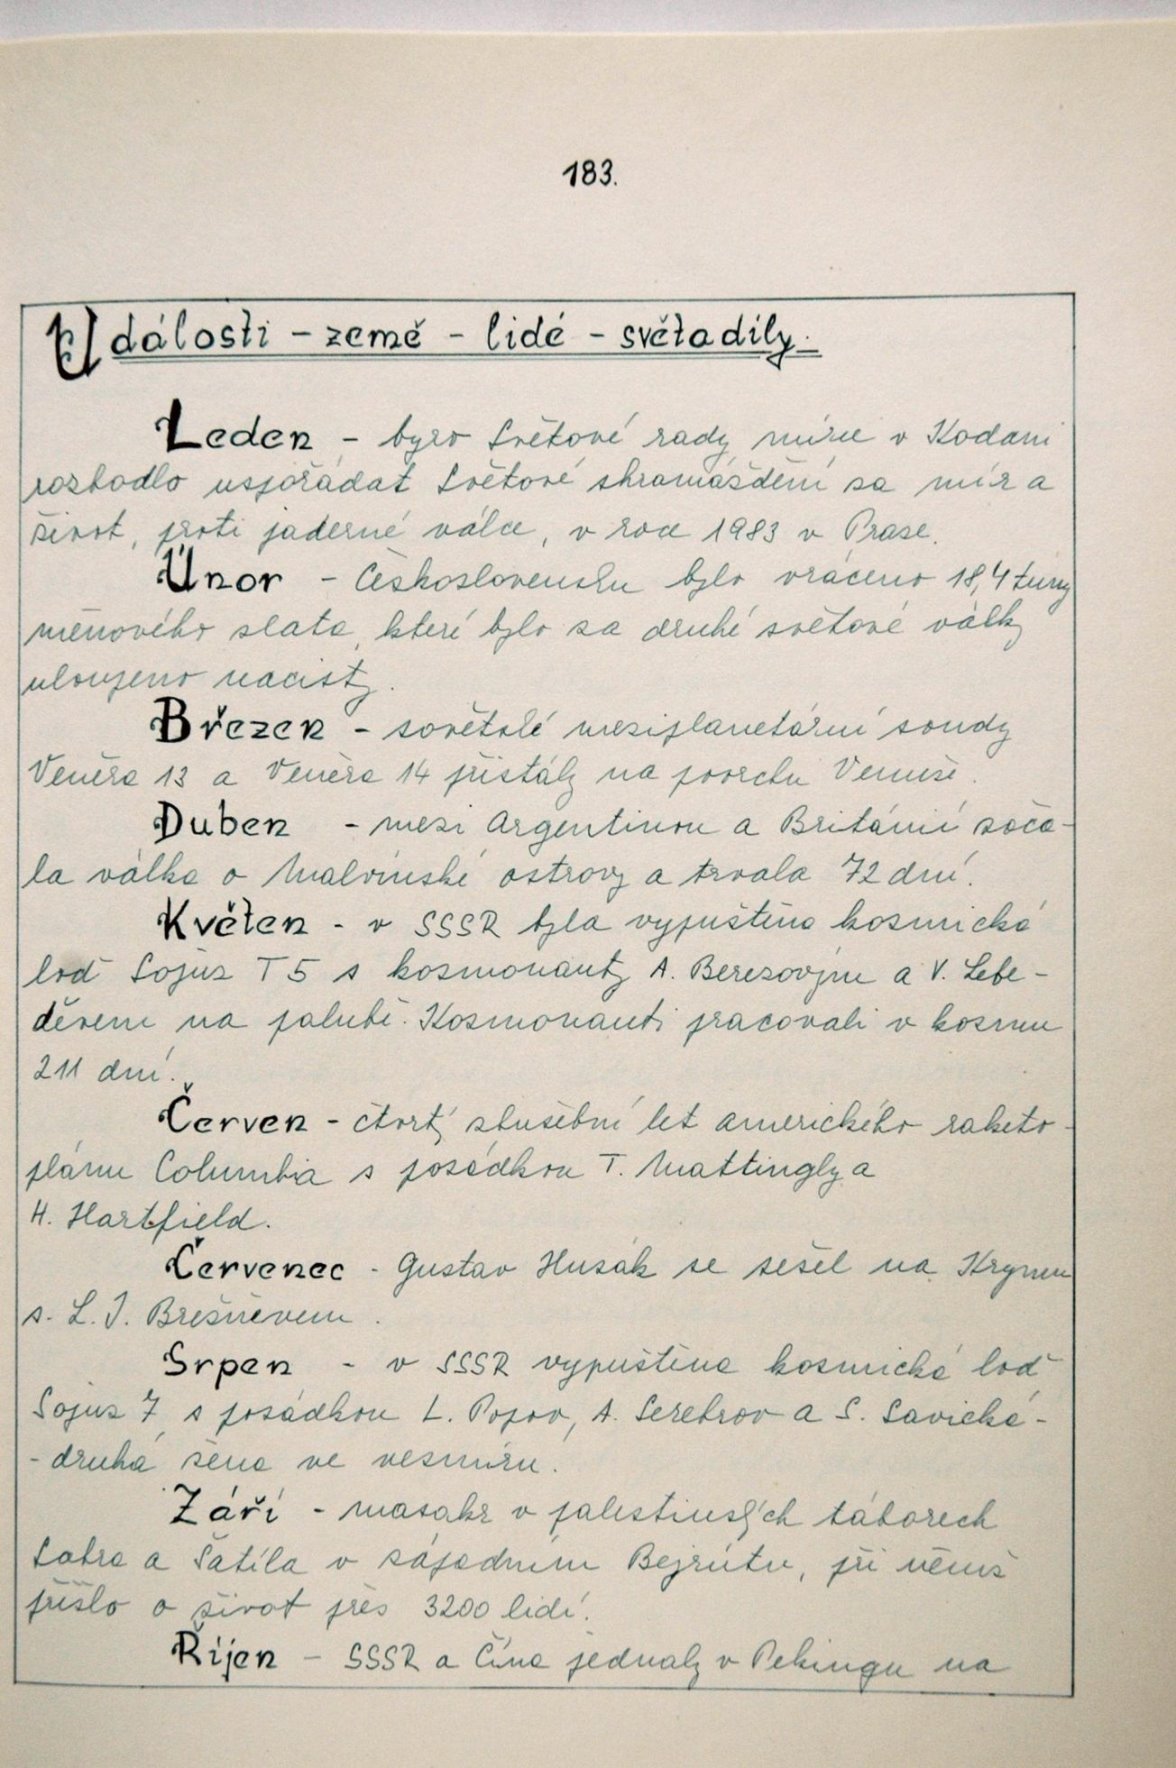 183.
Události - země - lidé - světadíly.
Leden - byro Světové rady míru v Kodani
rozhodlo uspořádat Světové shromáždění za mír a
život, proti jaderné válce, v roce 1983 v Praze.
Únor - Československu bylo vráceno 18,4 tuny
měnového zlata, které bylo za druhé světové války
uloupeno nacisty.
Březen - sovětské meziplanetární sondy
Veněra 13 a Veněra 14 přistály na povrchu Venuše.
Duben - mezi Argentinou a Británií zača-
la válka o Malvínské ostrovy a trvala 72 dní.
Květen - v SSSR byla vypuštěna kosmická
loď Sojuz T5 s kosmonauty A. Berezovým a V. Lebe-
děvem na palubě. Kosmonauti pracovali v kosmu
211 dní.
Červen - čtvrtý zkušební let amerického raketo-
plánu Columbia s posádkou T. Mattingly a
H. Hartfield.
Červenec - Gustav Husák se sešel na Krymu
s. L. I. Brežněvem.
Srpen - v SSSR vypuštěna kosmická loď
Sojuz 7 s posádkou L. Popov, A. Serebrov a S. Savická -
- druhá žena ve vesmíru.
Září - masakr v palestinských táborech
Sabra a Šatíla v západním Bejrútu, při němž
přišlo o život přes 3200 lidí.
Říjen - SSSR a Čína jednaly v Pekingu na